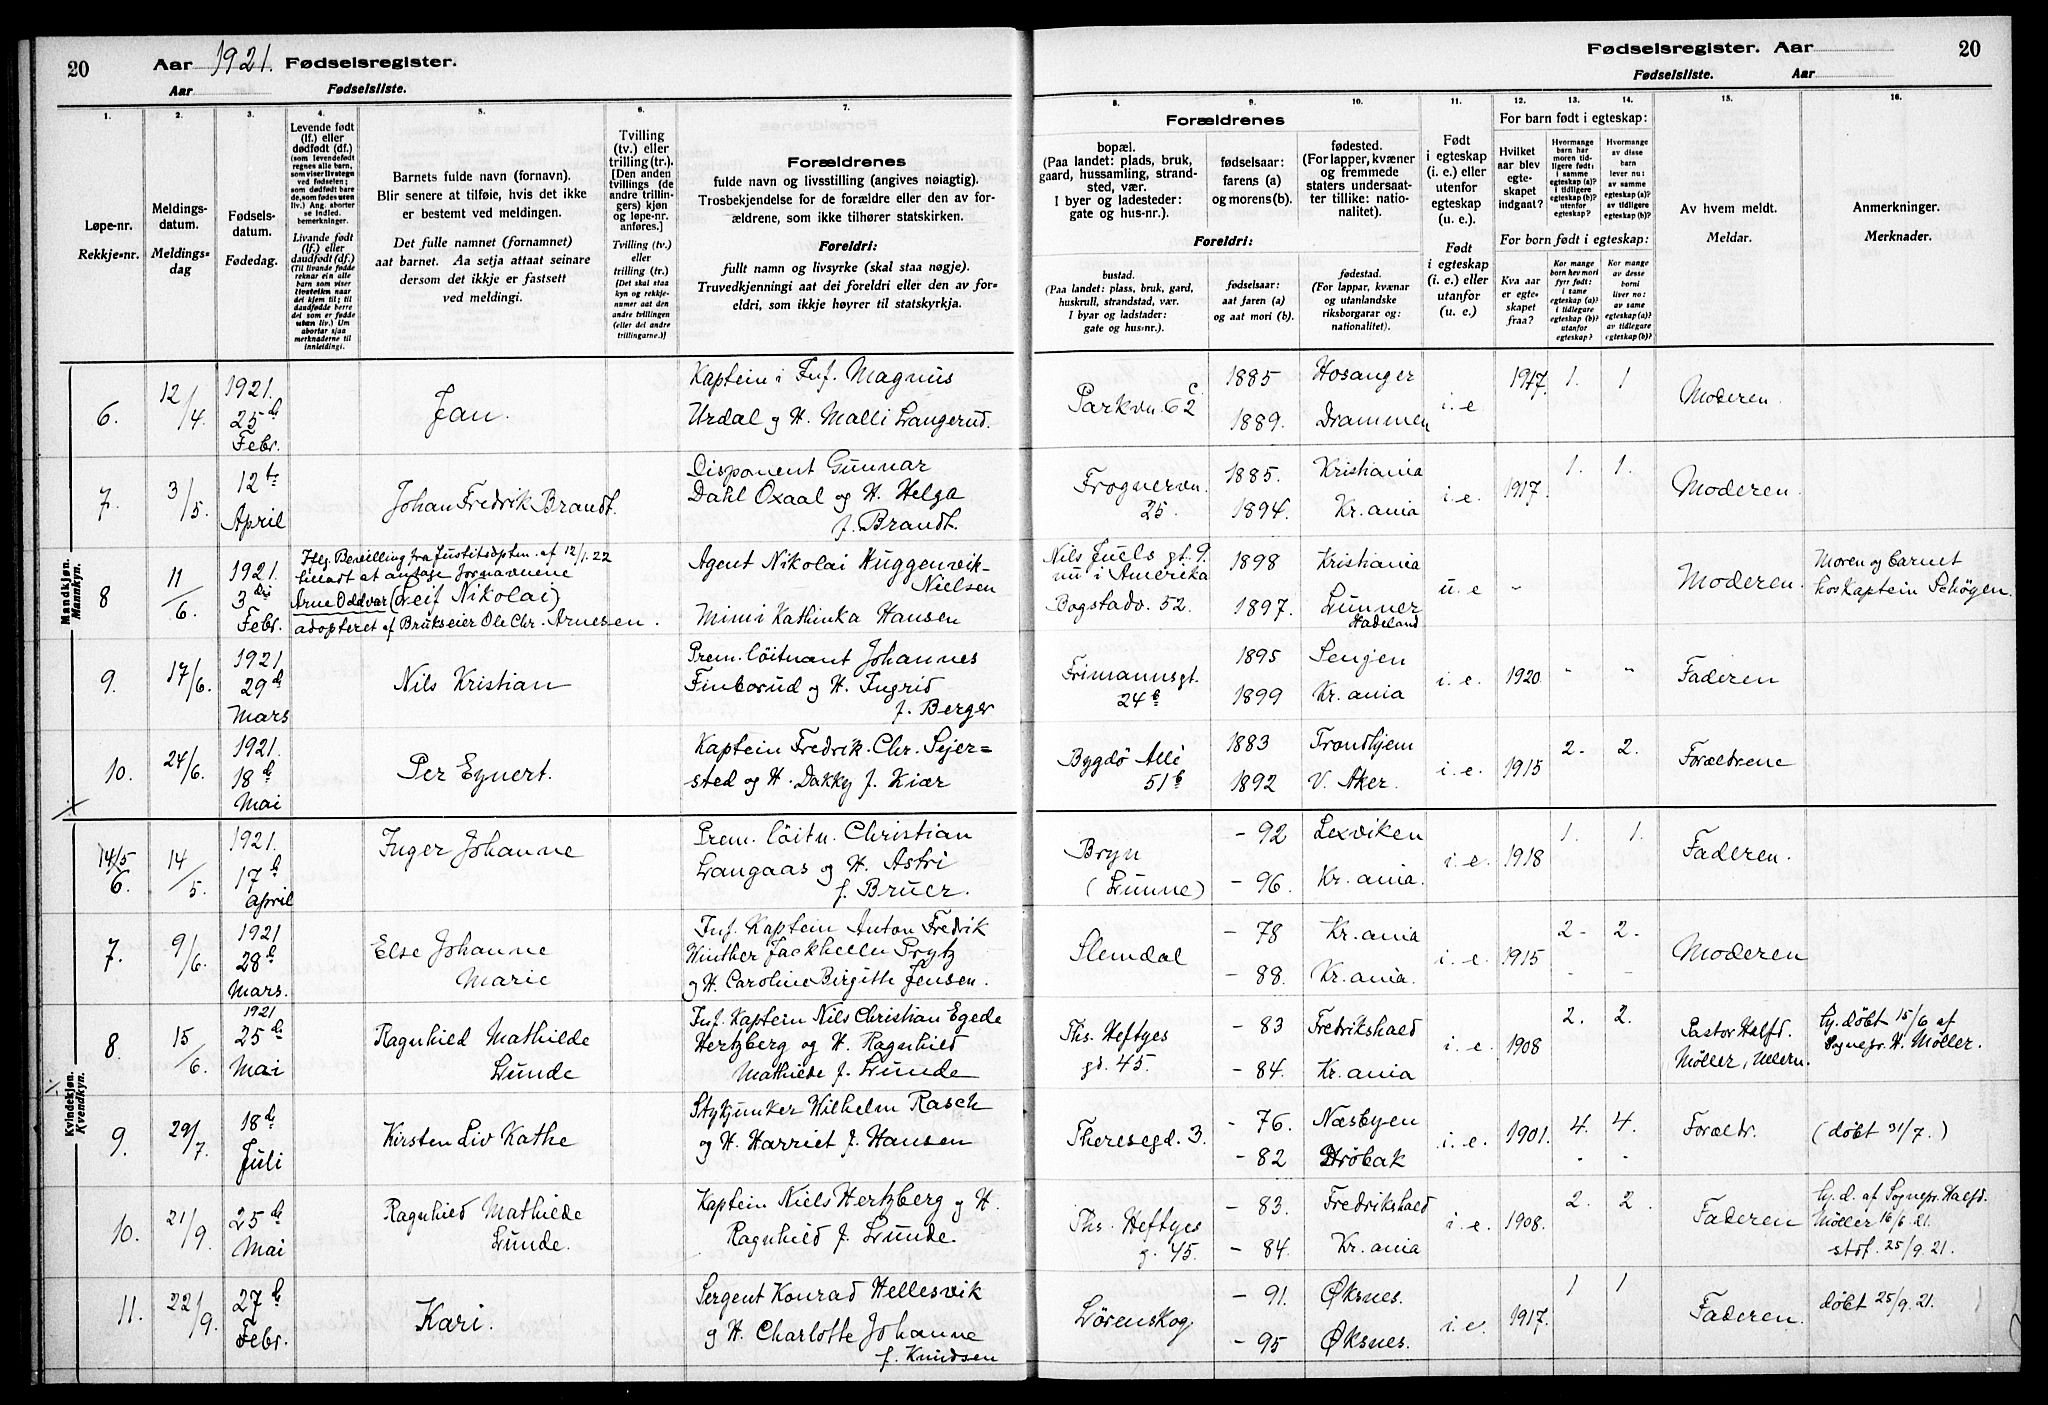 20 Aar 1921. Fødselsregister.
Aar Fødselsliste.
Fødselsregister. Aar 20
Fødselsliste. Aar
1.
Løpe-nr.
Rekkje-nr.
2.
Meldings-
datum.
Meldings-
dag
3.
Fødsels-
datum.
Fødedag.
4.
Levende født
(lf.) eller
dødfødt (df.)
(som levendefødt
regnes alle barn,
som viser livstegn
ved fødselen;
som dødfødt bare
de, som fødes uten
liv.) Ang. aborter
se indled.
bemerkninger.
Livande født
(lf.) eller
daudfødt (df.)
(Til livande fødde
reknar ein alle
barn som viser
livsteikn naar
dei kjem til; til
daudfødde berre
dei som er fødde
utan liv.) Um
abortar sjaa
merknaderne til
innleidingi.
5.
Barnets fulde navn (fornavn).
Blir senere at tilføie, hvis det ikke
er bestemt ved meldingen.
Det fulle namnet (fornamnet)
aat barnet. Aa setja attaat seinare
dersom det ikkje er fastsett
ved meldingi.
6.
Tvilling
(tv.) eller
trilling (tr.).
[Den anden
tvillings (de
andre trillin-
gers) kjøn
og løpe-nr.
anføres.]
Tvilling (tv.)
eller
trilling (tr.)
[Det skal staa
kyn og rekkje-
nummer aat den
andre tvillingen
(eller dei andre
trillingarne.)]
7.
Forældrenes
fulde navn og livsstilling (angives nøiagtig).
Trosbekjendelse for de forældre eller den av for-
ældrene, som ikke tilhører statskirken.
Foreldri:
fullt namn og livsyrke (skal staa nøgje).
Truvedkjenningi aat dei foreldri eller den av for-
eldri, som ikkje høyrer til statskyrkja.
8.
Forældrenes
bopæl.
(Paa landet: plads, bruk,
gaard, hussamling, strand-
sted, vær.
I byer og ladesteder:
gate og hus-nr.).
Foreldri:
bustad.
(Paa landet: plass, bruk, gard,
huskrull, strandstad, vær.
I byar og ladstader:
gate og hus-nr.).
9.
fødselsaar:
farens (a)
og morens (b).
fødselsaar:
aat faren (a)
og aat mori (b).
10.
fødested.
(For lapper, kvæner
og fremmede
staters undersaat-
ter tillike: natio-
nalitet).
fødestad.
(For lappar, kvænar
og utanlandske
riksborgarar og:
nationalitet).
11.
Født
i egteskap
(i. e.) eller
utenfor
egteskap
(u. e.).
Født
i egteskap
(i. e.) eller
utanfor
(u. e.)
For barn født i egteskap:
For born født i egteskap:
12.
Hvilket
aar blev
egte-
skapet
indgaat?
Kva aar
er egte-
skapet
fraa?
13.
Hvormange
barn har
moren tid-
ligere født:
i samme
egteskap (a)?
i tidligere
egteskap (b)?
utenfor
egteskap?
Kor mange
born hev mori
fyrr født:
i same
egteskap (a)?
i tidlegare
egteskap (b)?
utanfor
egteskap?
14.
Hvormange
av disse
barn
lever nu:
av samme
egteskap (a)?
av tidligere
egteskap (b)?
Kor mange
av desse
borni
liver no:
av same
egteskap (a)?
av tidlegare
egteskap (b)?
15.
Av hvem meldt.
Meldar.
16.
Anmerkninger.
Merknader.
Mandkjøn.
Mannkyn.
6. 12/4. 1921. 25d Febr. Jan. Kaptein i Inf. Magnus
Urdal og H. Malli Langerud. Parkvn. 62c 1885 Hosanger
1889. Drammen i. e 1917. 1. 1 Moderen.
7. 3/5. 12te April Johan Fredrik Brandt. Disponent Gunnar
Dahl Oxaal og H. Helga
f. Brandt. Frognervn.
25. 1885. Kristiania
1894. Kr.ania i. e. 1917. 1. 1. Moderen.
8 11/6. 1921. 3die Febr. Ifg. Bevilling fra Justitsdptm. af 12/1.22
tilladt at antage fornavnene
Arne Oddvar (Leif Nikolai)
adopteret af Brukseier Ole Chr. Arnesen.
Agent Nikolai Huggenvik-
Nielsen
Mimi Kathinka Hansen
Nils Juels gt. 9.
nu i Amerika
Bogstadv. 52. 1898 Kristiania
1897. Lunner
Hadeland u. e " Moderen. Moren og barnet
hos Kaptein Schøyen.
9. 17/6. 1921 29d Mars Nils Kristian Prem. löitnant Johannes
Finborud og H. Ingrid
f. Berger Frimannsgt.
24b 1895 Senjen
1899 Kr. ania i. e. 1920 " " Faderen
10. 24/6. 1921. 18d Mai Per Eynert. Kaptein Fredrik Chr. Sejer=
sted og H. Dakky f. Kiær Bygdö Allé
51b 1883 Trondhjem
1892 V. Aker. i. e. 1915 2. 2. Forældrene
Kvindekjøn.
Kvendkyn.
14/5
6. 14/5. 1921. 17d april Inger Johanne Prem. löitn. Christian
Langaas og H. Astri
f. Bruer. Bryn
(Lunne) – 92 Lexviken
– 96. Kr. ania. i. e. 1918 1. 1. Faderen.
7. 9/6. 1921 28d Mars. Else Johanne
Marie Inf. Kaptein Anton Fredrik
Winther Jackhelln Prytz
og H. Caroline Birgitte Jensen. Slemdal – 78 Kr. ania
– 88. Kr. ania. i. e. 1915 2. 2.
- - Moderen
8. 15/6. 1921 25d Mai Ragnhild Mathilde
Lunde Inf. Kaptein Nils Christian Egede
Hertzberg og H. Ragnhild
Mathilde f. Lunde Ths. Heftyes
gd. 45. – 83 Fredrikshald
– 84. Kr. ania i. e. 1908 2. 2. Pastor Halfd.
Møller, Ullern. hj. døbt 15/6 af
Sognepr. H. Møller.
9. 29/7. 18d Juli Kirsten Liv Kathe Stykjunker Wilhelm Rasch
og H. Harriet f. Hansen Theresegd. 3. – 76. Næsbyen
– 82 Drøbak i. e. 1901. 4. 4.
- - Forældr. (døbt 31/7.)
10. 21/9. 25d Mai Ragnhild Mathilde
Lunde. Kaptein Niels Hertzberg og H.
Ragnhild f. Lunde. Ths. Heftyes
g. 45. – 83. Fredrikshald
– 84. Kr. ania i. e. 1908. 2. 2. Faderen hj. d. af Sognepr. Halfd.
Møller 16/6 21.
stdf. 25/9. 21.
11. 22/9. 27d Febr. Kari. Sergent Konrad Hellesvik
og H. Charlotte Johanne
f. Knudsen Lörenskog – 91. Øksnes.
– 95 Øksnes. i. e. 1917. 1 1 Faderen. døbt 25/9. 21.